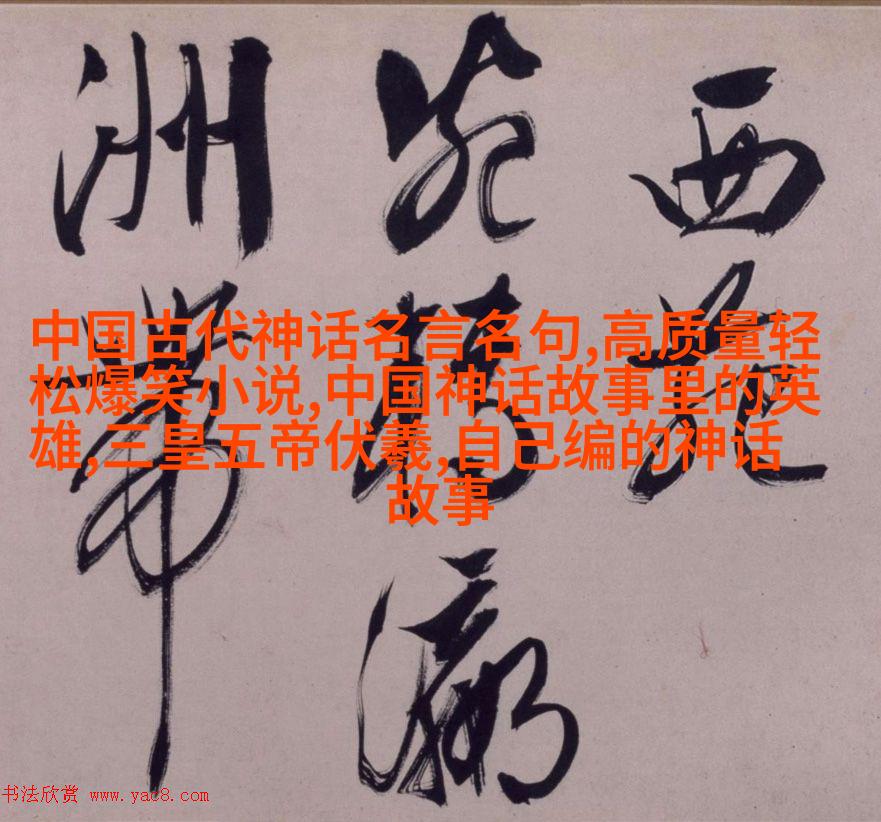 中国古代神话名言名句,高质量轻
松爆笑小说,中国神话故事里的英
雄,三皇五帝伏羲,自己编的神话
故事
西苑
瀛
洲帶
书法欣赏 www.yac8.com